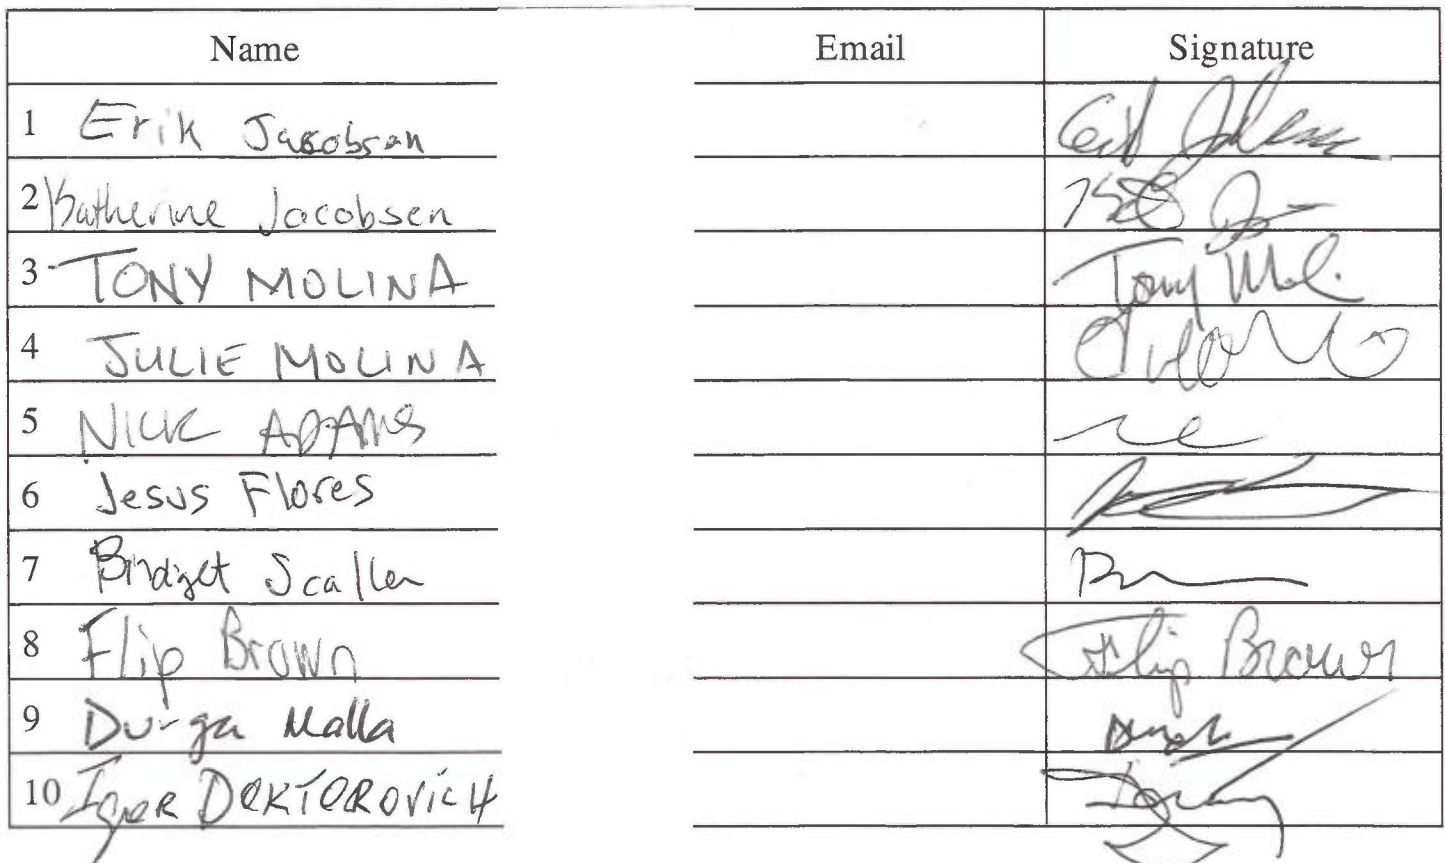 Name Email Signature
1 Erik Jacobsen
2 Katherine Jacobsen
3 TONY MOLINA Tony Mol.
4 JULIE MOLINA
5 NICK ADAMS
6 Jesus Flores
7 Bridget Scallen
8 Flip Brown Flip Brown
9 Durga Malla
10 Igor DOKTOROVICH